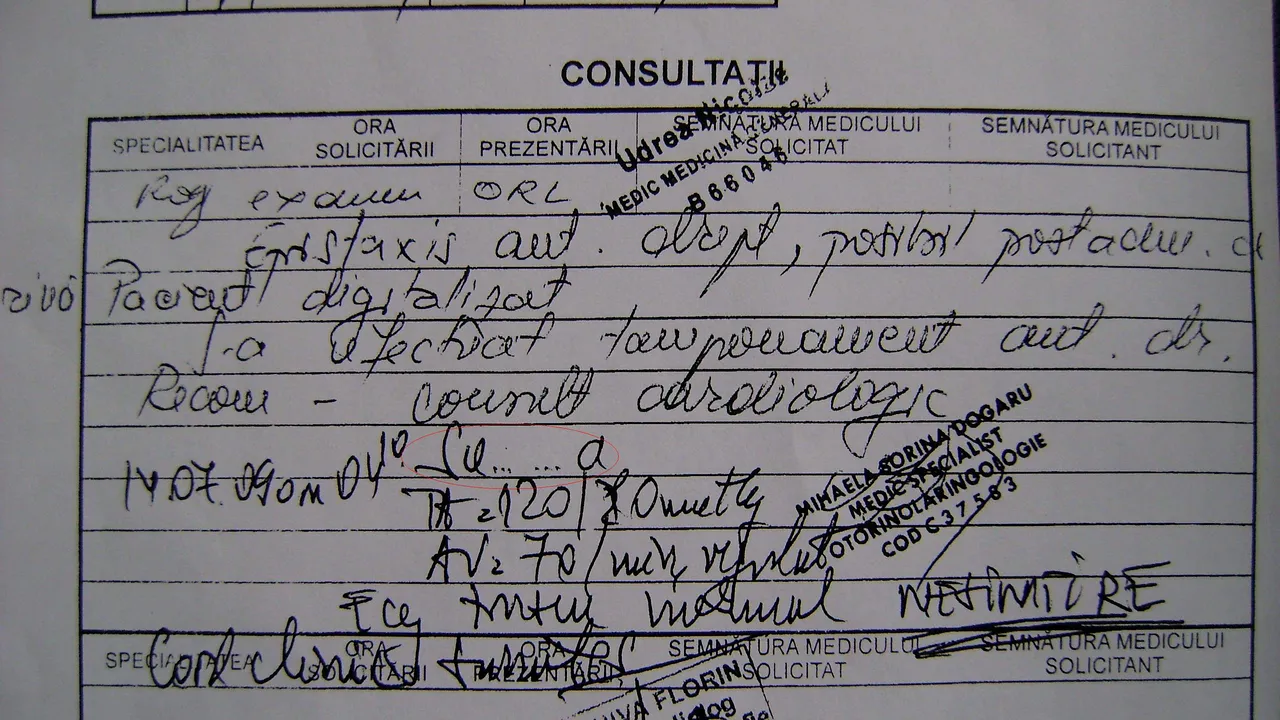 CONSULTAȚII
SPECIALITATEA ORA SOLICITĂRII ORA PREZENTĂRII SEMNĂTURA MEDICULUI SOLICITAT SEMNĂTURA MEDICULUI SOLICITANT
Udrea Nicolae
MEDIC MEDICINĂ GENERALĂ
B66046
Rog examen ORL
Epistaxis ant. drept, posibil postadm. de
Pacient digitalizat
S-a efectuat tamponament ant. dr.
Recom - consult cardiologic
MIHAELA SORINA DOGARU
MEDIC SPECIALIST
OTORINOLARINGOLOGIE
COD C37583
14.07.09 04¹⁰ Su... ... a
TA = 120/80 mmHg
AV = 70/min, regulat
normal NESIMȚIRE
Cord clinic
SPECIALITATEA ORA SOLICITĂRII ORA PREZENTĂRII SEMNĂTURA MEDICULUI SOLICITAT SEMNĂTURA MEDICULUI SOLICITANT
FLORIN